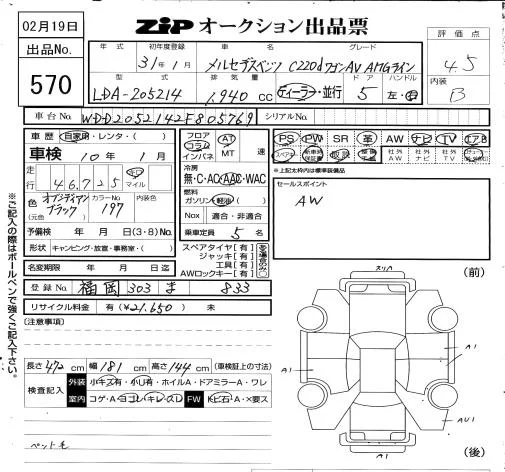 02月19日
ZIP オークション出品票
出品No.
570
年式 初年度登録 車名 グレード
31年1月 メルセデスベンツ C220dワゴンAV AMGライン
型式 排気量 ドア ハンドル
LDA-205214 1,940 cc ディーラー・並行 5 左・右
評価点
4.5
内装
B
車台No. WDD2052142F805769 シリアルNo.
車歴 自家用・レンタ・( )
車検 10年 1月
走行 46,725 キロ マイル
色 (元色) オブシディアンブラック カラーNo 197 内装色
予備検 年 月 日 (3・8)No.
形状 キャンピング・放送・事務室・( )
名変期限 年 月 日迄
フロア コラム インパネ AT MT 速
冷房 無・C・AC・AAC・WAC
燃料 ガソリン・軽油( )
Nox 適合・非適合
乗車定員 5名
スペアタイヤ【有】
ジャッキ【有】
工具【有】
AWロックキー【有】
PS PW SR 革 AW ナビ TV エアB
スペアキー 新車時保証書 取説 社外AW 社外ナビ 社外TV
*上記太枠内は標準装備品
セールスポイント
AW
登録No. 福岡 303 ま 833
リサイクル料金 有(¥21,650) 未
(注意事項)
長さ 472 cm 幅 181 cm 高さ 144 cm (車検証上の寸法)
検査記入 外装 小キズ有・小U有・ホイルA・ドアミラーA・ワレ
室内 コゲ・A・ヨゴレ・キレ・スレ FW トビ石・A・×要ス
ペット毛
※ご記入の際はボールペンで強くご記入下さい。
(前)
スリA
A1
A1
A1
AU1
A1
(後)